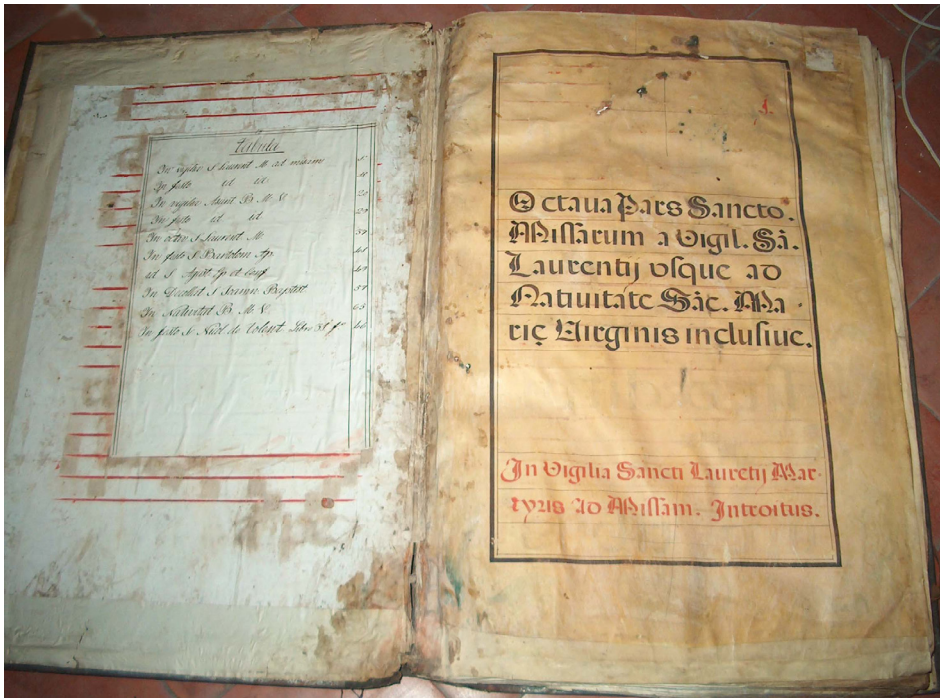 Tabula
In vigilia S Laurent M ad missam 1
In festo id id
In vigilia Assupt B. M. V. 20
In festo id id 29
In octav S Laurent M. 39
In festo S Bartolom Ap
id S August Ep et conf
In Decollat S Joann Baptist 57
In Nativitat B. M. V. 65
In festo S. Nicol de Tolent Libro 66
Octaua Pars Sancto.
Missarum a Vigil. Sã.
Laurentij vsque ad
Natiuitatẽ Sãc. Ma-
rię Virginis inclusiue.
In Vigilia Sancti Lauretij Mar-
tyris ad Missam. Introitus.